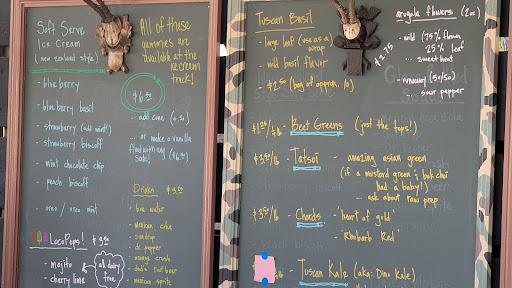 Soft Serve
Ice Cream
(new zealand style)
- blueberry
- blueberry basil
- strawberry (add mint!)
- strawberry biscoff
- mint chocolate chip
- peach biscoff
- oreo / oreo mint
LocoPops! $3.50
- mojito
- cherry lime
all dairy
free
All of these
yummies are
available at the
ice cream
truck!
$6.50
- add cone (+.50)
- or make a vanilla
float with any
soda! ($6.50)
Drinks $3.00
- box water
- mexican coke
- sundrop
- dr. pepper
- orange crush
- dad's root beer
- mexican sprite
Tuscan Basil
- large leaf (use as a
wrap
- mild basil flavor
- $2.50 (bag of approx. 10)
arugula flowers (2oz)
$2.75
- mild (75% flower
25% leaf
- sweet heat
- runaway (50/50)
- sour pepper
- Beet Greens (just the tops!)
$3.50/lb - Tatsoi - amazing asian green
(if a mustard green & bok choi
had a baby!)
- ask about raw prep
$3.50/lb - Chards - 'heart of gold'
'Rhubarb Red'
- Tuscan Kale (aka: Dino Kale)